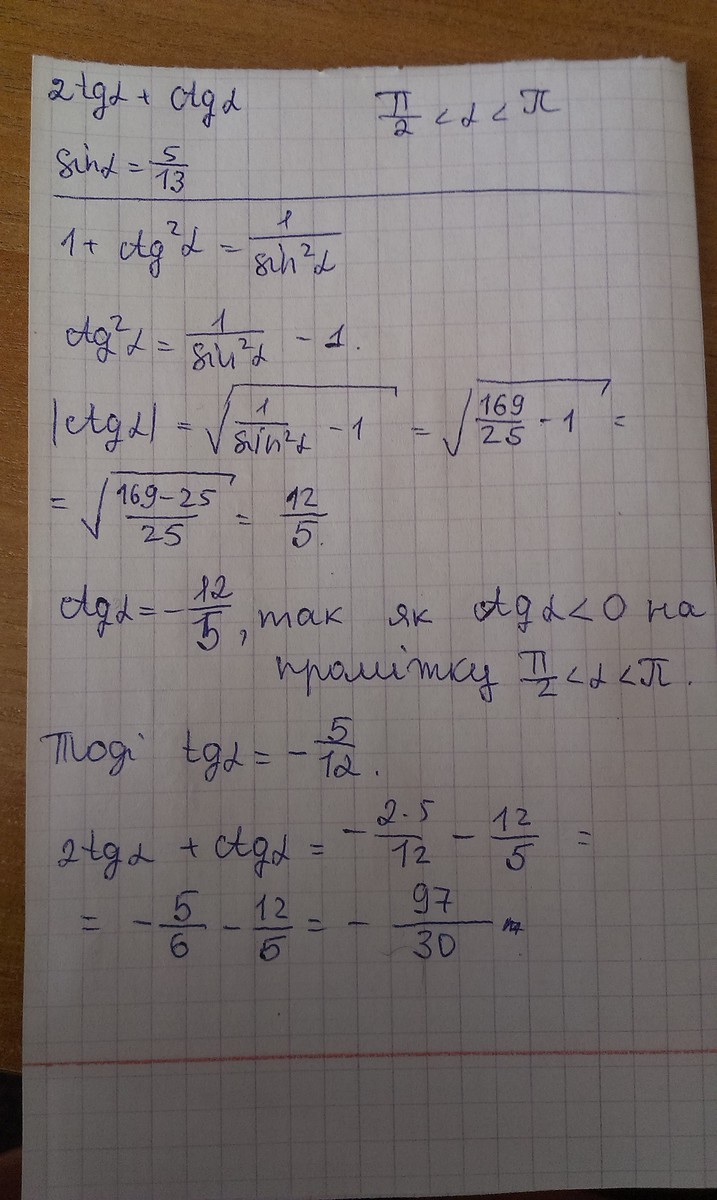 2tgα + ctgα    π/2 < α < π
sinα = 5/13
1 + ctg²α = 1/sin²α
ctg²α = 1/sin²α - 1.
|ctgα| = √(1/sin²α - 1) = √(169/25 - 1) =
= √((169-25)/25) = 12/5.
ctgα = -12/5, так як ctgα < 0 на
проміжку π/2 < α < π.
Тоді tgα = -5/12.
2tgα + ctgα = -(2·5)/12 - 12/5 =
= -5/6 - 12/5 = -97/30